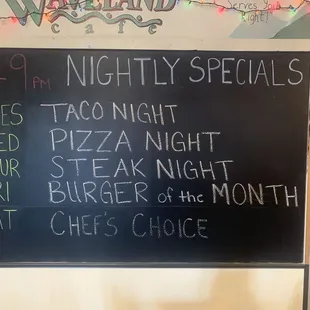 WAVELAND
Cafe
Serves You
Right!
-9 PM NIGHTLY SPECIALS
ES TACO NIGHT
ED PIZZA NIGHT
UR STEAK NIGHT
RI BURGER of the MONTH
AT CHEF'S CHOICE